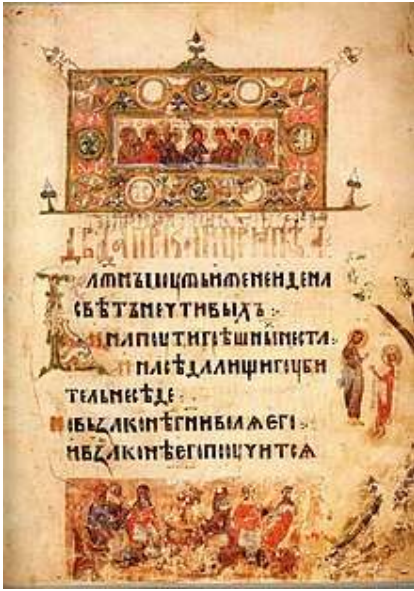 блжнъмоужьиженеидена
свѣтънечтивыхъ
инапоутигрѣшнынеста
инасѣдалищигоуби
тельнесѣде
новьзаконѣгниволѧего
ивьзаконѣегопооучитсѧ